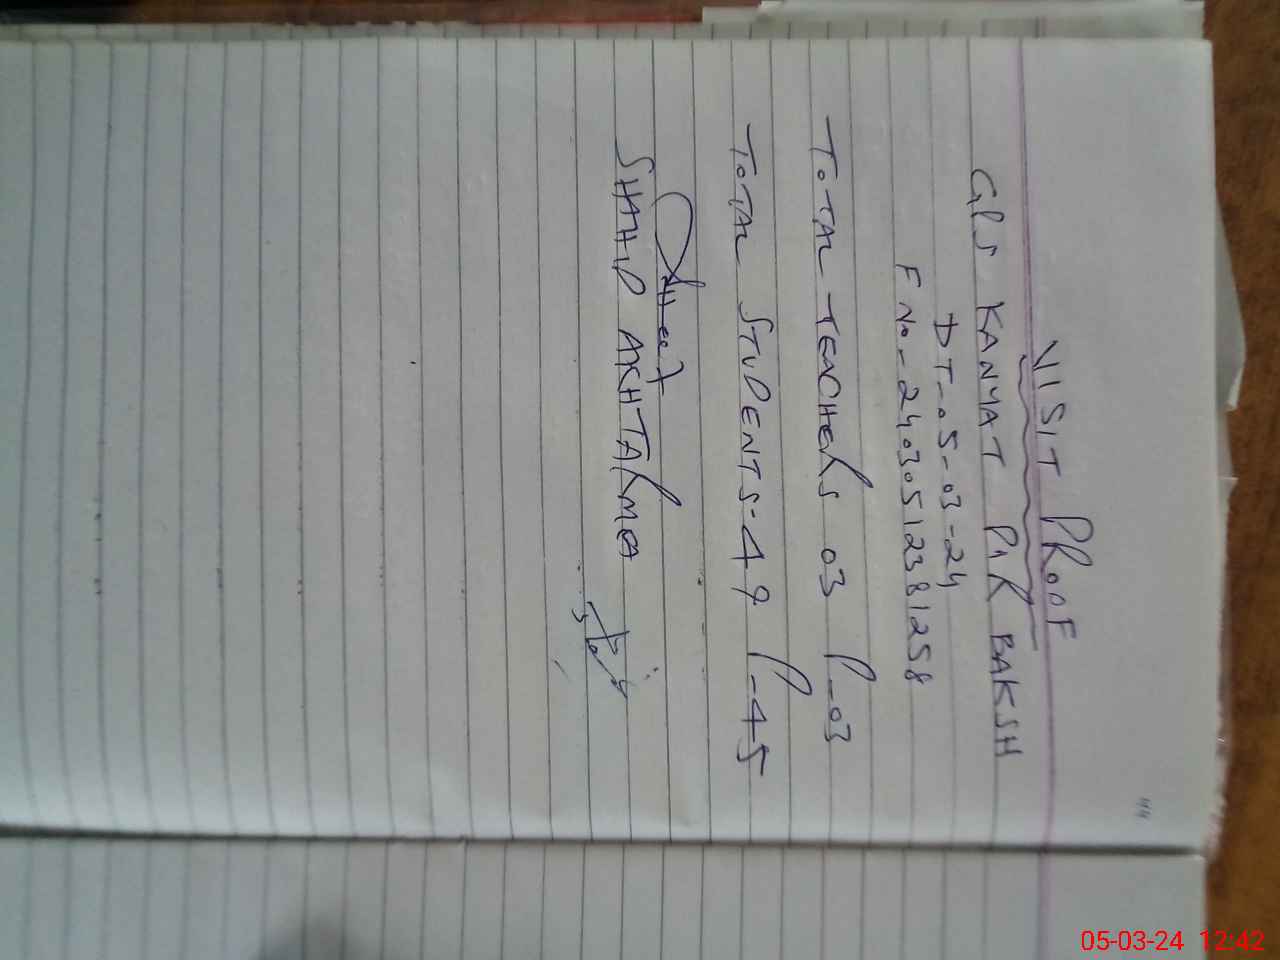 44
VISIT PROOF
GPS KANYAT PIR BAKSH
DT-05-03-24
F No- 24030512381258
TOTAL TEACHERS 03 P-03
TOTAL STUDENTS-49 P-45
SHAHID AKHTAR
05-03-24 12:42